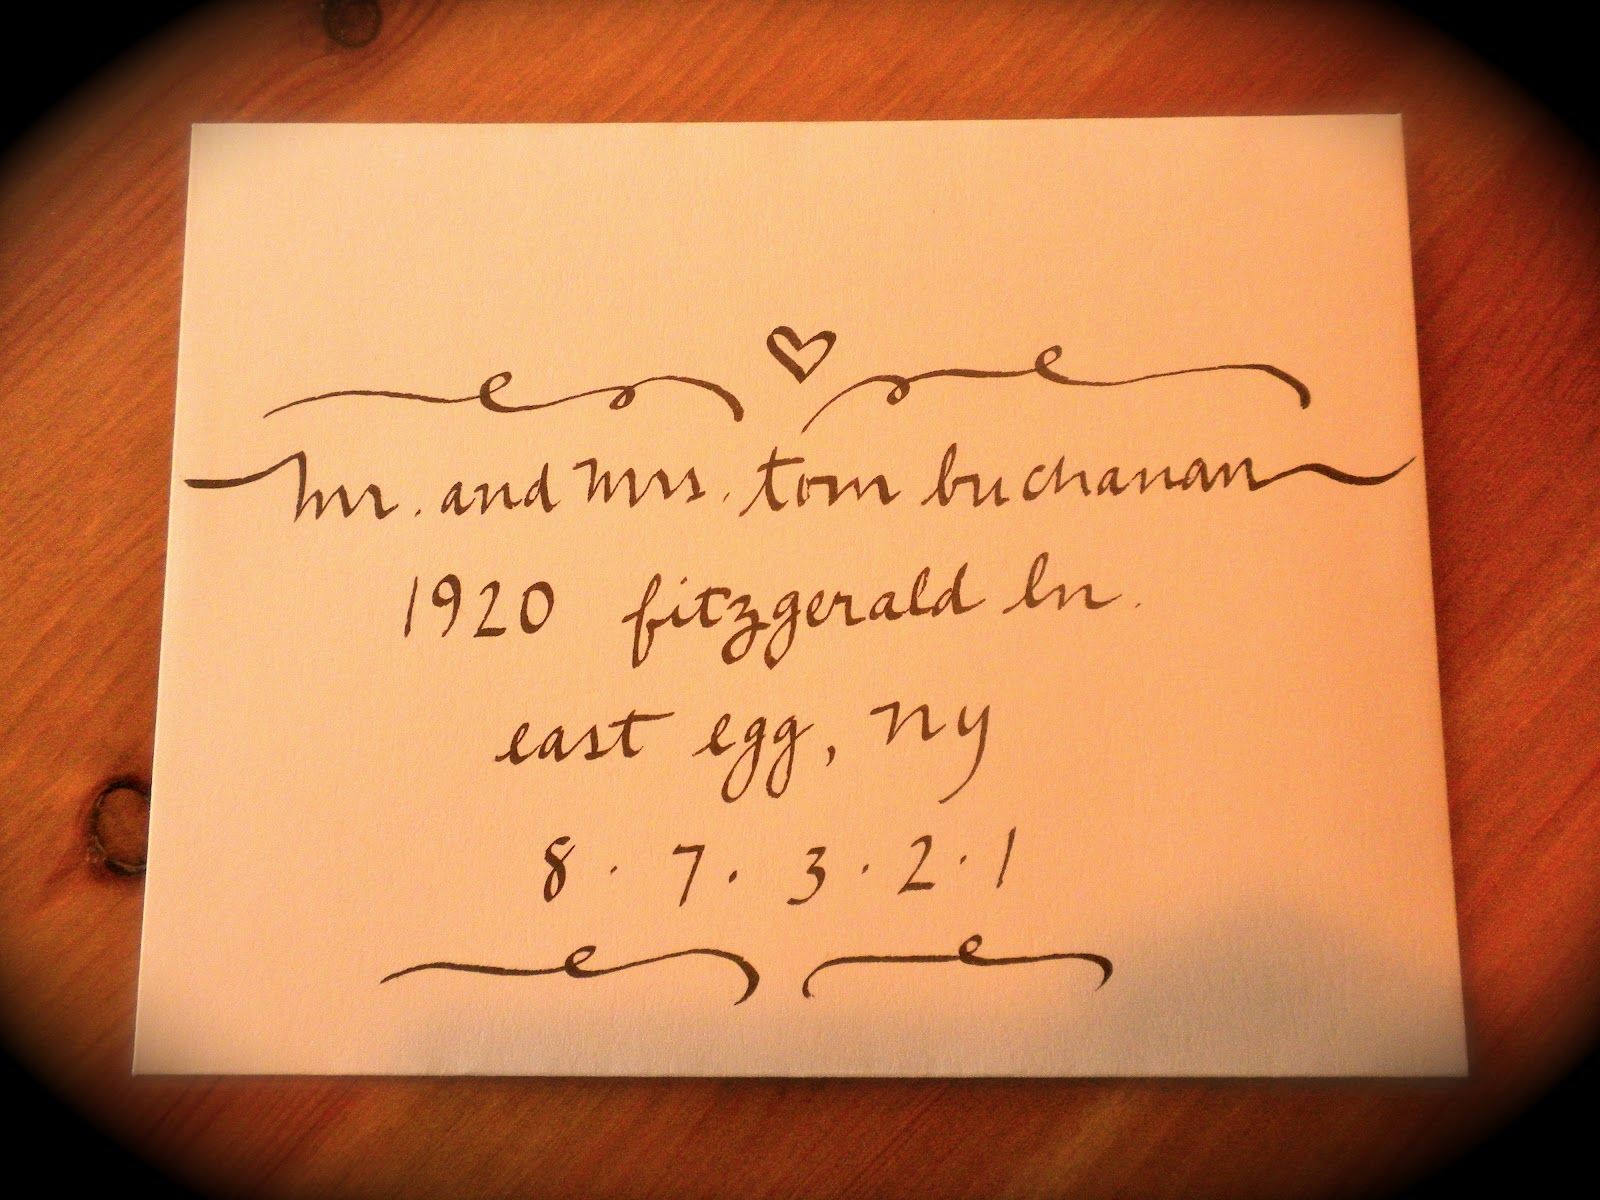 mr. and mrs. tom buchanan
1920 fitzgerald ln.
east egg, ny
8 · 7 · 3 · 2 · 1